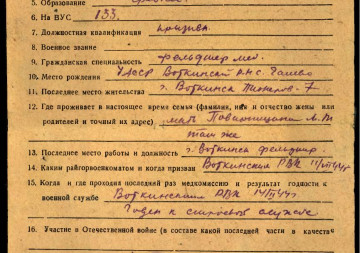 5. Образование
6. На ВУС 133.
7. Должностная квалификация
8. Военное звание
9. Гражданская специальность фельдшер мед.
10. Место рождения УАССР Воткинский
11. Последнее место жительства г. Воткинск
12. Где проживает в настоящее время семья (фамилия, имя и отчество жены или
родителей и точный их адрес) мать
там же
13. Последнее место работы и должность г. Воткинск фельдшер.
14. Каким райгорвоенкоматом и когда призван Воткинским РВК
15. Когда и где проходил последний раз медкомиссию и результат годности к
военной службе Воткинский РВК
Годен к строевой службе
16. Участие в Отечественной войне (в составе какой последней части в качеств